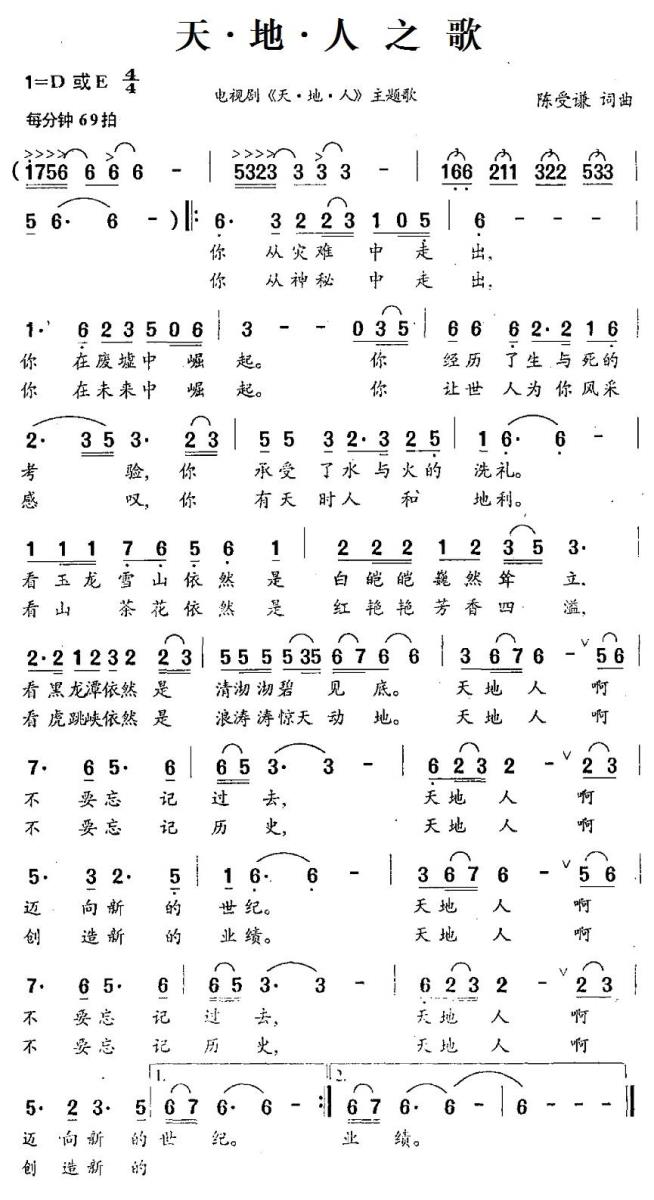 天·地·人之歌
1=D 或 E 4/4
电视剧《天·地·人》主题歌
陈受谦 词曲
每分钟69拍
(1756 6 6 6 - | 5323 3 3 3 - | 166 211 322 533 |
5 6· 6 - )‖: 6· 3 2 2 3 1 0 5 | 6 - - -
你 从灾难 中 走 出,
你 从神秘 中 走 出,
1· 6 2 3 5 0 6 | 3 - - 0 3 5 | 6 6 6 2·2 1 6
你 在废墟中 崛 起。 你 经历 了生与死的
你 在未来中 崛 起。 你 让世 人为你风采
2· 3 5 3· 2 3 | 5 5 3 2·3 2 5 | 1 6· 6 -
考 验,你 承受 了水与火的 洗礼。
感 叹,你 有天 时人 和 地利。
1 1 1 7 6 5 6 1 | 2 2 2 1 2 3 5 3·
看玉龙 雪山依然 是 白皑皑巍然耸 立,
看山 茶花依然 是 红艳艳芳香四 溢,
2·2 1 2 3 2 2 3 | 5 5 5 5 35 6 7 6 6 | 3 6 7 6 - ∨ 5 6
看黑龙潭依然 是 清沏沏碧 见 底。 天地人 啊
看虎跳峡依然 是 浪涛涛惊天 动 地。 天地人 啊
7· 6 5· 6 | 6 5 3· 3 - | 6 2 3 2 - ∨ 2 3
不 要忘 记 过 去, 天地 人 啊
不 要忘 记 历 史, 天地 人 啊
5· 3 2· 5 | 1 6· 6 - | 3 6 7 6 - ∨ 5 6
迈 向新 的 世纪。 天地 人 啊
创 造新 的 业绩。 天地 人 啊
7· 6 5· 6 | 6 5 3· 3 - | 6 2 3 2 - ∨ 2 3
不 要忘 记 过 去, 天地 人 啊
不 要忘 记 历 史, 天地 人 啊
1. 2.
5· 2 3· 5 | 6 7 6· 6 - :‖ 6 7 6· 6 - | 6 - - ‖
迈 向新 的世 纪。 业 绩。
创 造新 的